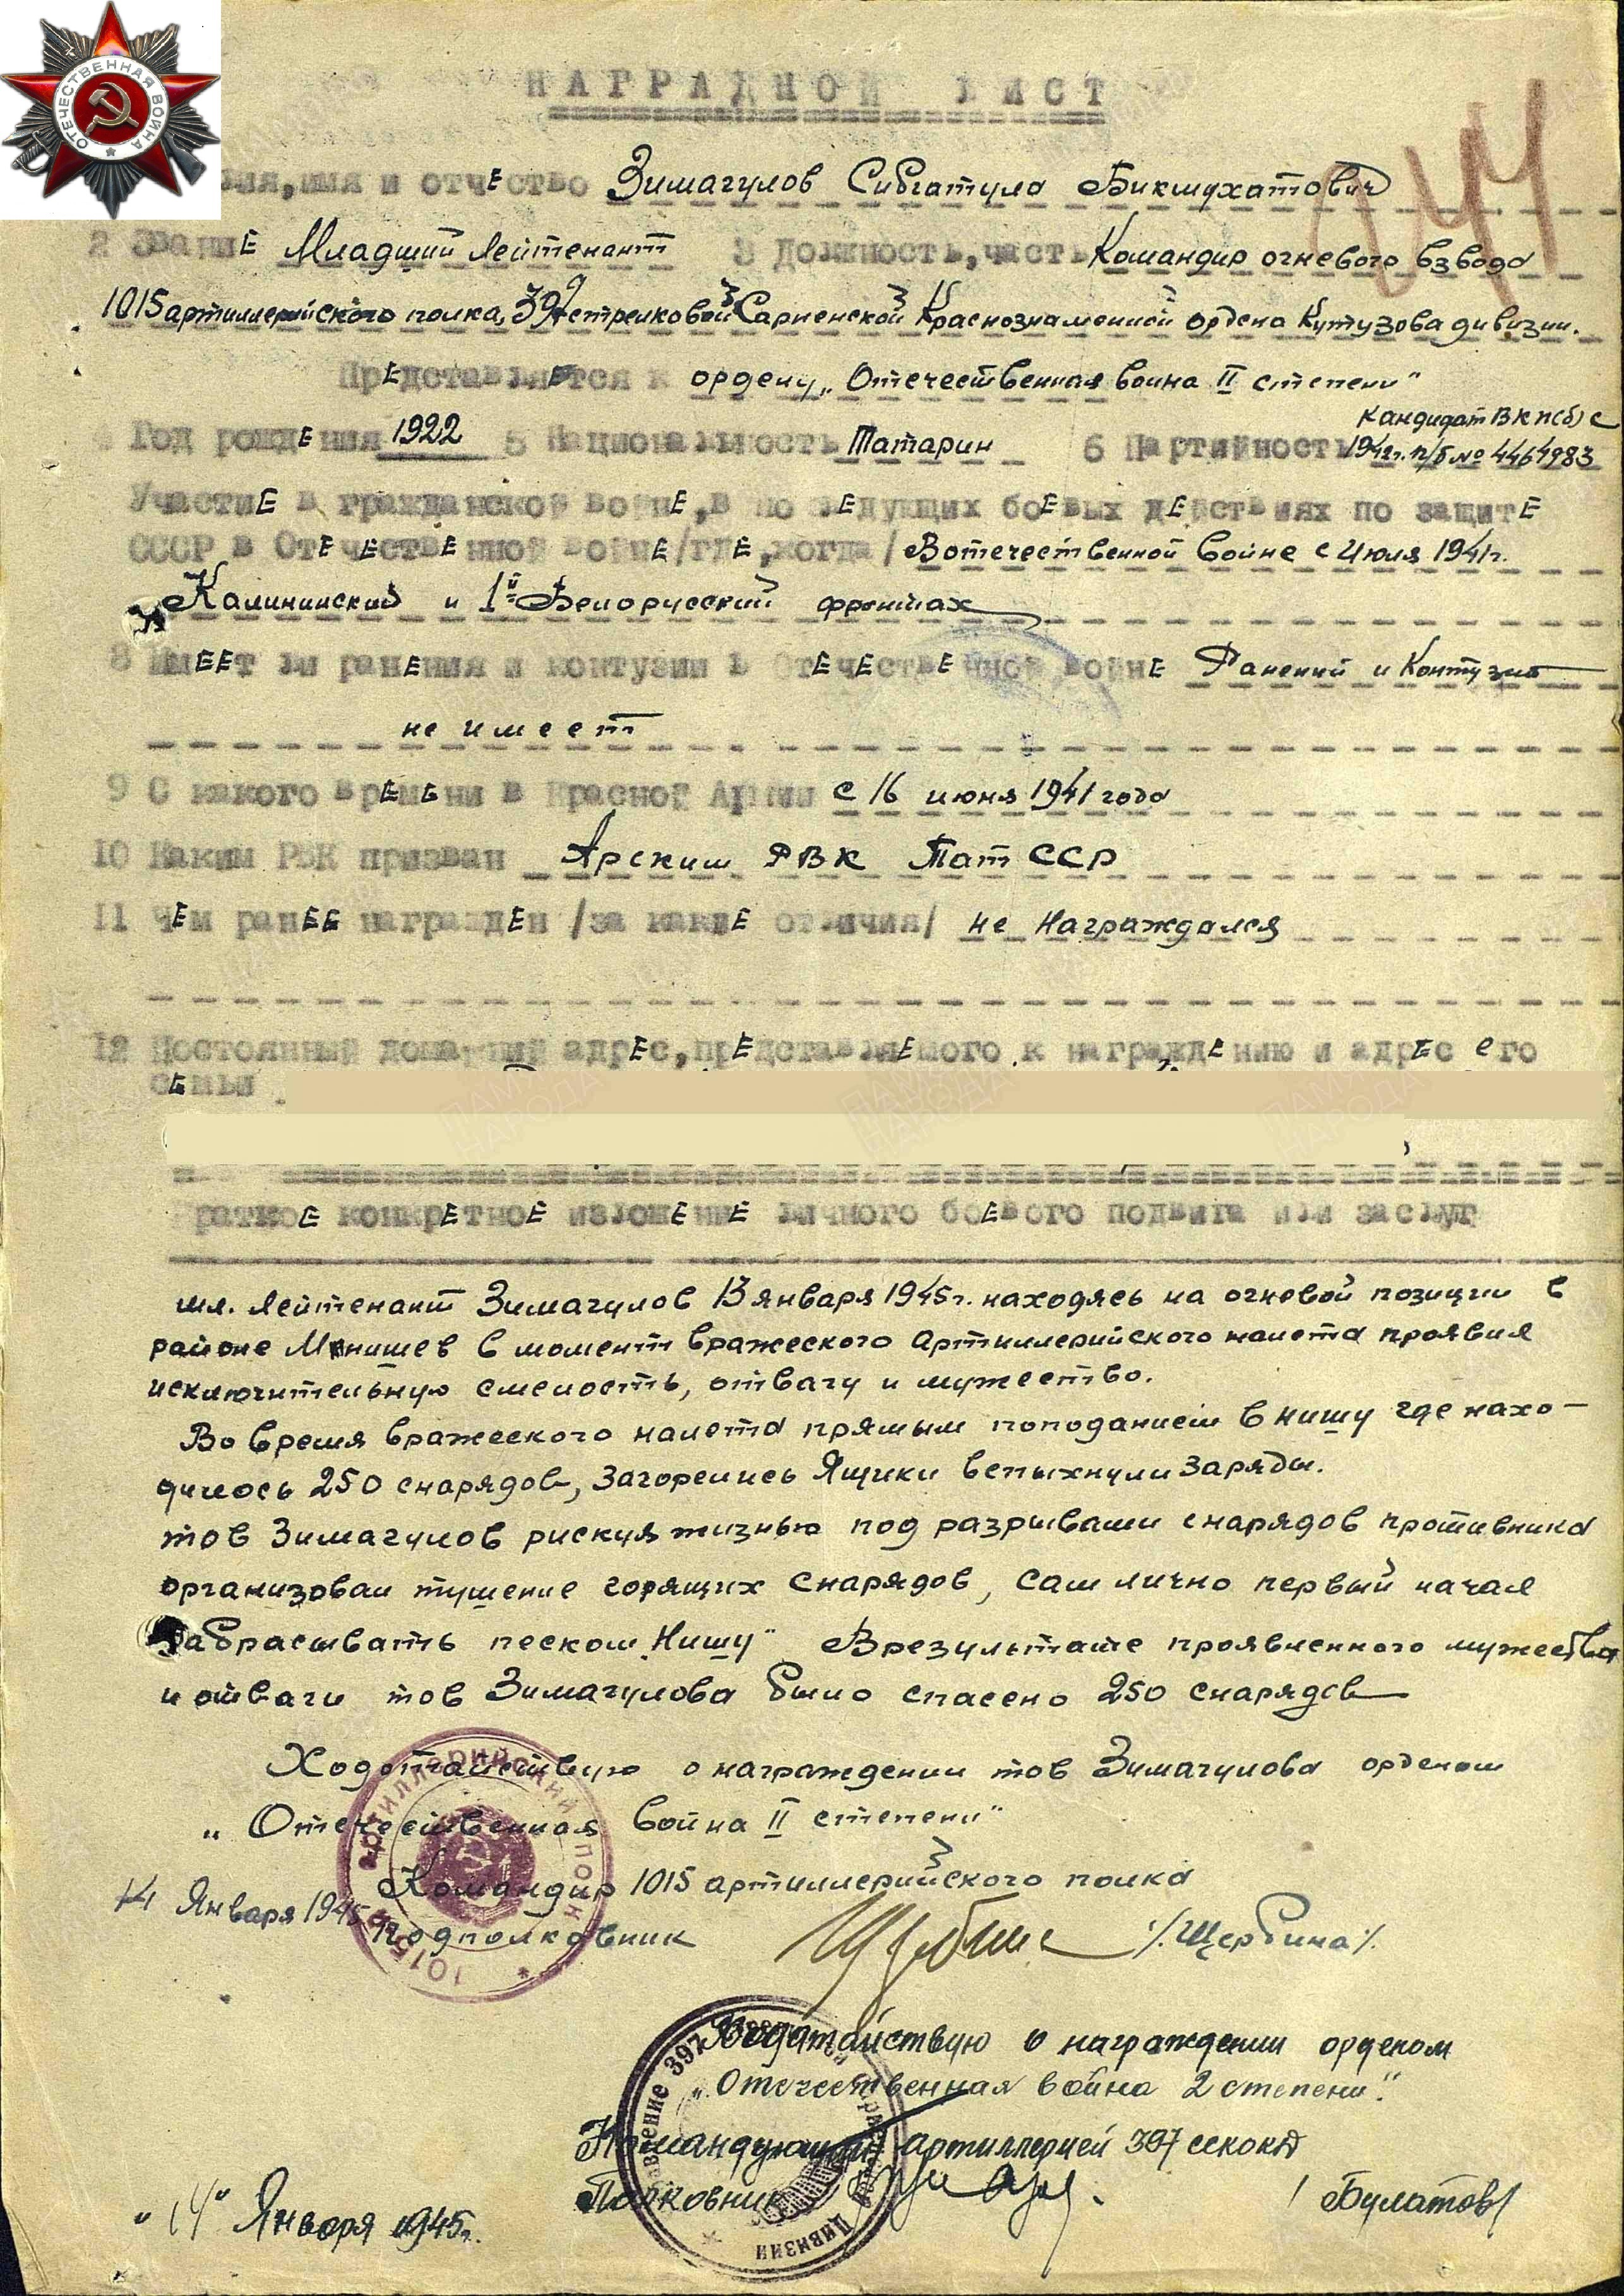 ОТЕЧЕСТВЕННАЯ ВОЙНА
НАГРАДНОЙ ЛИСТ
имя и отчество Зимагулов Сибгатула Бикмухатович
2 Звание Младший лейтенант 3 Должность, часть Командир огневого взвода
1015 артиллерийского полка, 397 стрелковой Сарненской Краснознаменной ордена Кутузова дивизии.
Представляется к ордену „Отечественная война II степени"
Год рождения 1922 5 Национальность Татарин 6 Партийность Кандидат ВКП(б) с
194 г. п/б № 4464983
Участие в гражданской войне, в последующих боевых действиях по защите
СССР в Отечественной войне /где, когда/ В отечественной войне с Июля 1941г.
Калининский и 1й Белорусский фронтах
8 Имеет ли ранения и контузии в Отечественной войне Ранений и Контузий
не имеет
9 С какого времени в Красной Армии с 16 июня 1941 года
10 Каким РВК призван Арским РВК Тат ССР
11 Чем ранее награжден /за какие отличия/ не награждался
12 Постоянный домашний адрес, представляемого к награждению и адрес его
семьи
раткое конкретное изложение личного боевого подвига или заслуг
мл. лейтенант Зимагулов 13 января 1945г. находясь на огневой позиции в
районе Мнишев в момент вражеского артиллерийского налета проявил
исключительную смелость, отвагу и мужество.
Во время вражеского налета прямым поподанием в нишу где нахо-
дилось 250 снарядов, загорелись Ящики вспыхнули заряды.
тов Зимагулов рискуя жизнью под разрывами снарядов противника
организовал тушение горящих снарядов, сам лично первый начал
забрасывать песком „Нишу" В результате проявленного мужества
и отваги тов Зимагулова было спасено 250 снарядов
Ходотайствую о награждении тов Зимагулова орденом
„Отечественная война II степени"
Командир 1015 артиллерийского полка
14 Января 1945 Подполковник /Щербина/.
1015 артиллерийский полк
Ходатайствую о награждении орденом
„Отечественная война 2 степени".
Командующий артиллерией 397 сскокд
Полковник /Булатов/
"14" Января 1945г.
Управление 397 Дивизии
ПАМЯТЬ НАРОДА